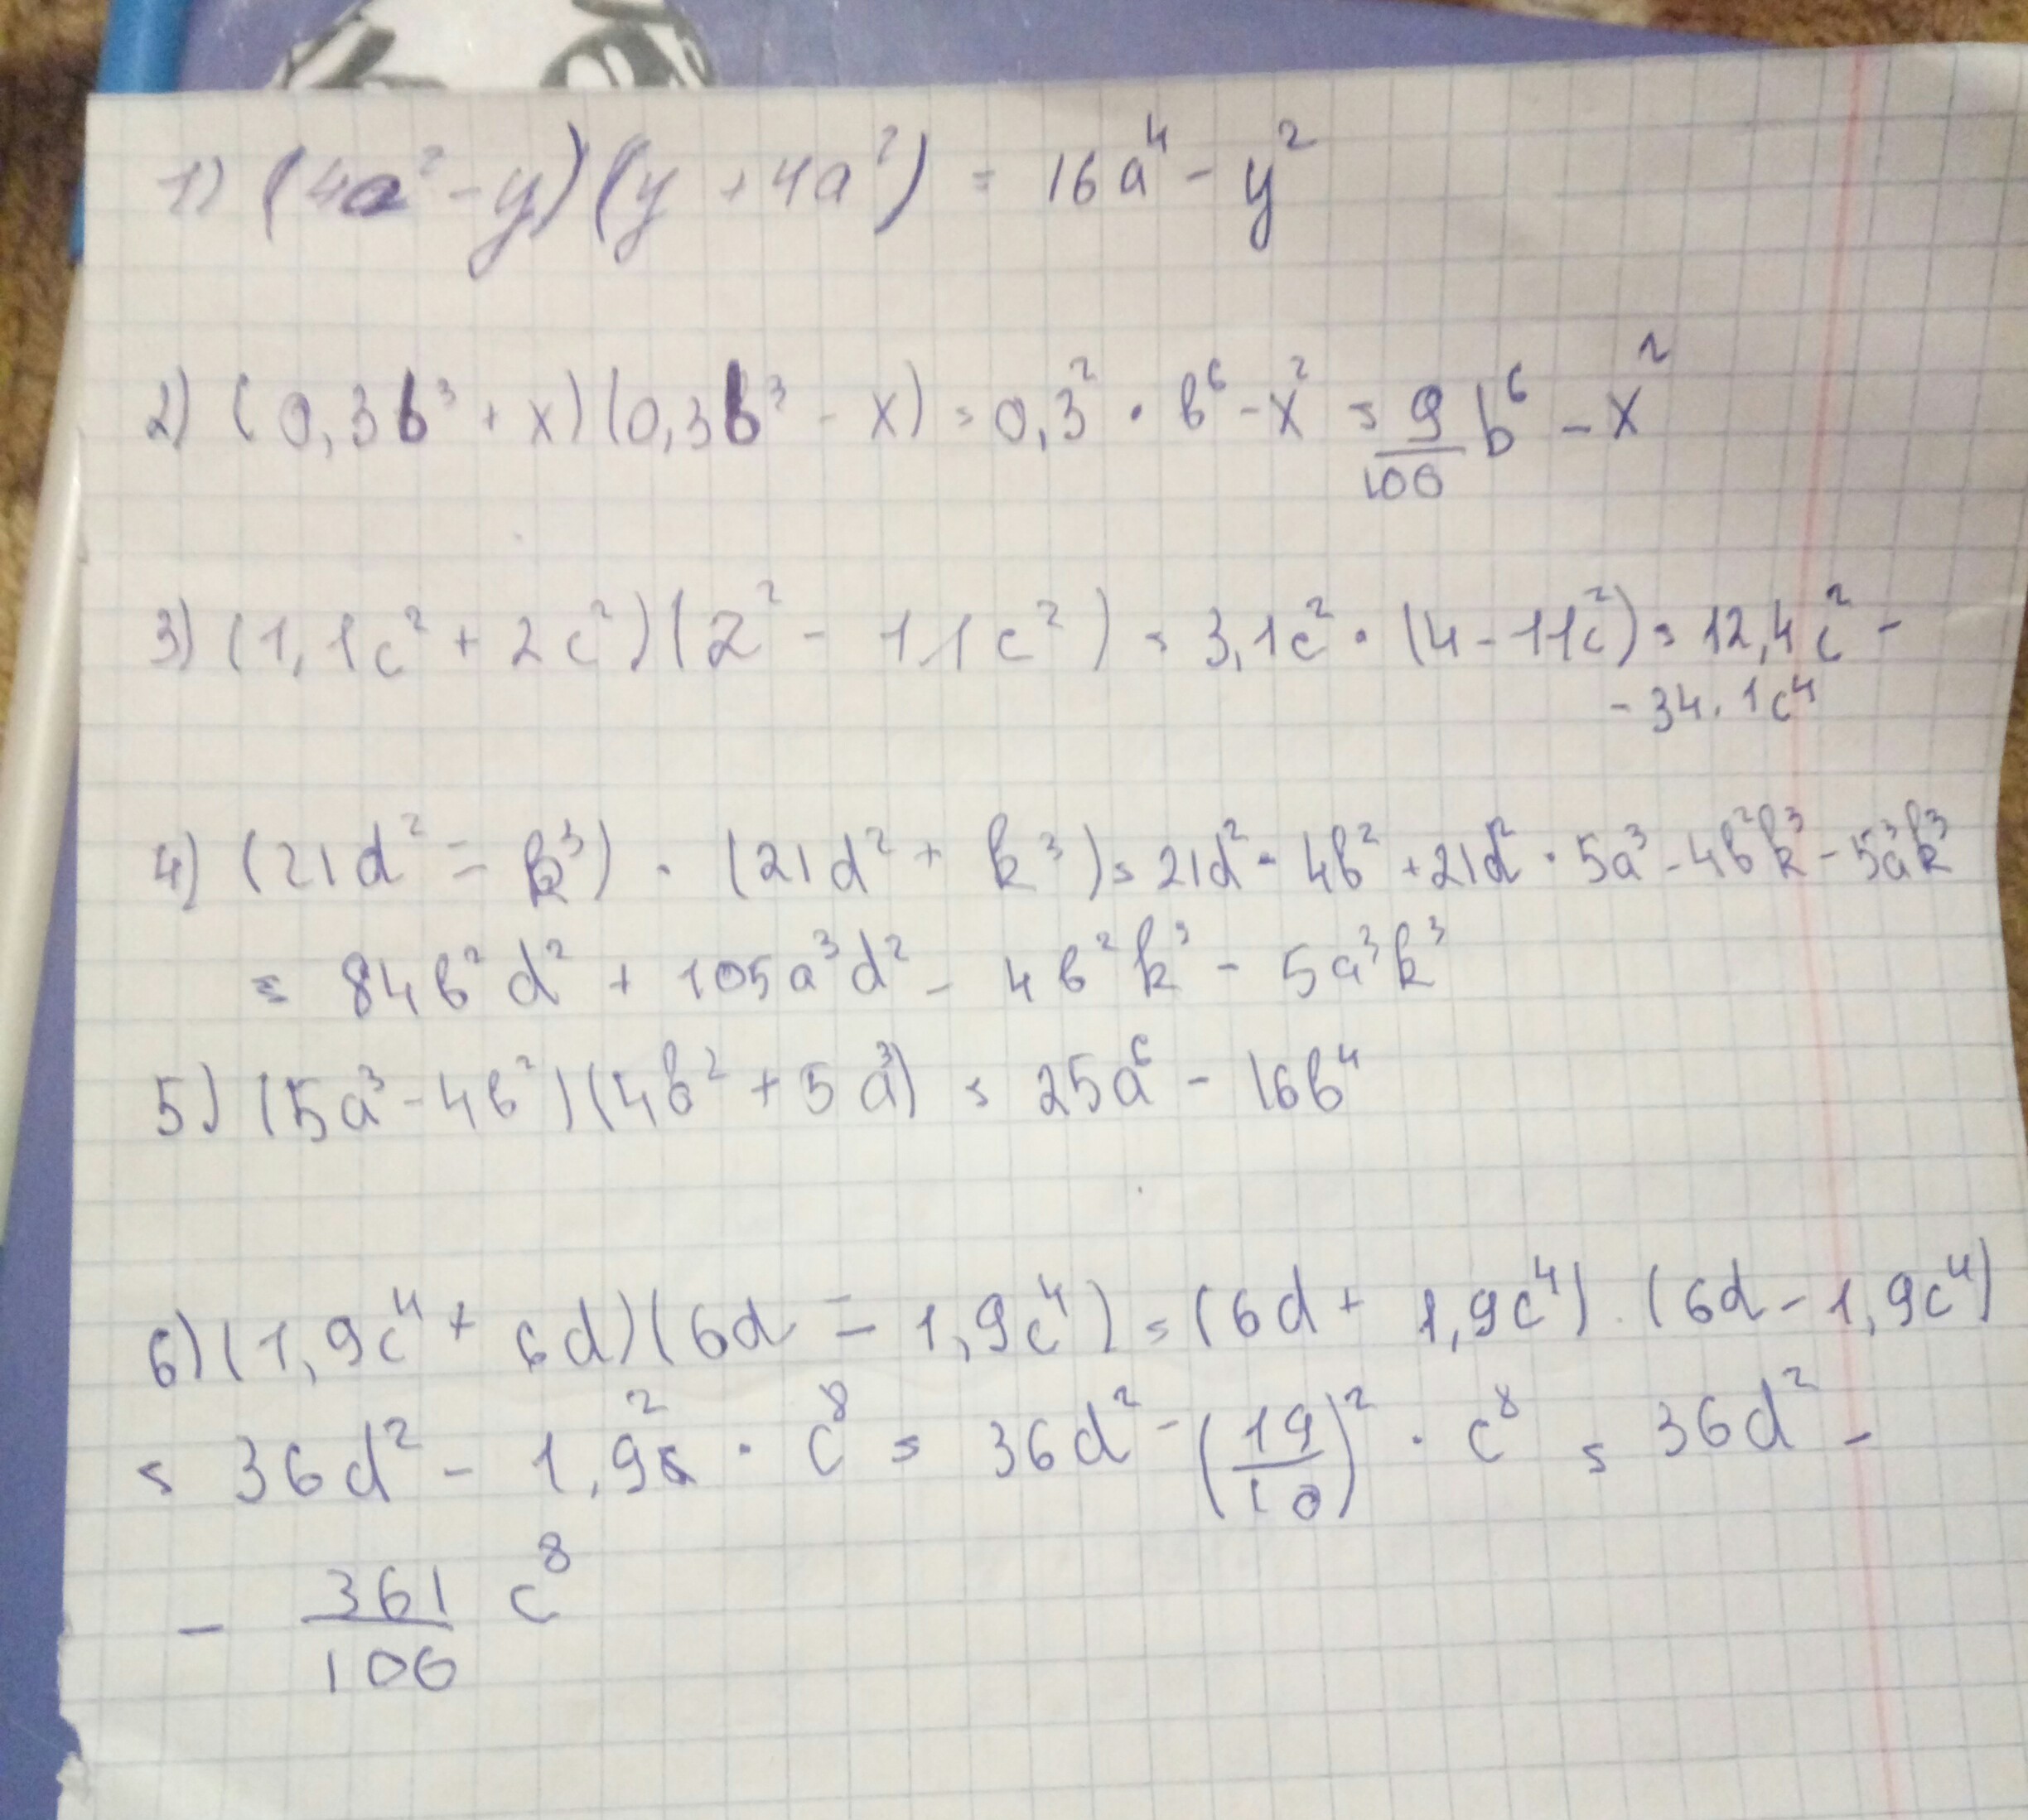 1) (4a² - y)(y + 4a²) = 16a⁴ - y²
2) (0,3b³ + x)(0,3b³ - x) = 0,3² · b⁶ - x² = 9/100 b⁶ - x²
3) (1,1c² + 2c²)(2² - 11c²) = 3,1c² · (4 - 11c²) = 12,4c² -
- 34.1c⁴
4) (21d² - k³) · (21d² + k³) = 21d² · 4b² + 21d² · 5a³ - 4b²k³ - 5a³k³
= 84b²d² + 105a³d² - 4b²k³ - 5a³k³
5) (5a³ - 4b²)(4b² + 5a³) = 25a⁶ - 16b⁴
6) (1,9c⁴ + 6d)(6d - 1,9c⁴) = (6d + 1,9c⁴) · (6d - 1,9c⁴)
= 36d² - 1,9² · c⁸ = 36d² - (19/10)² · c⁸ = 36d² -
- 361/100 c⁸